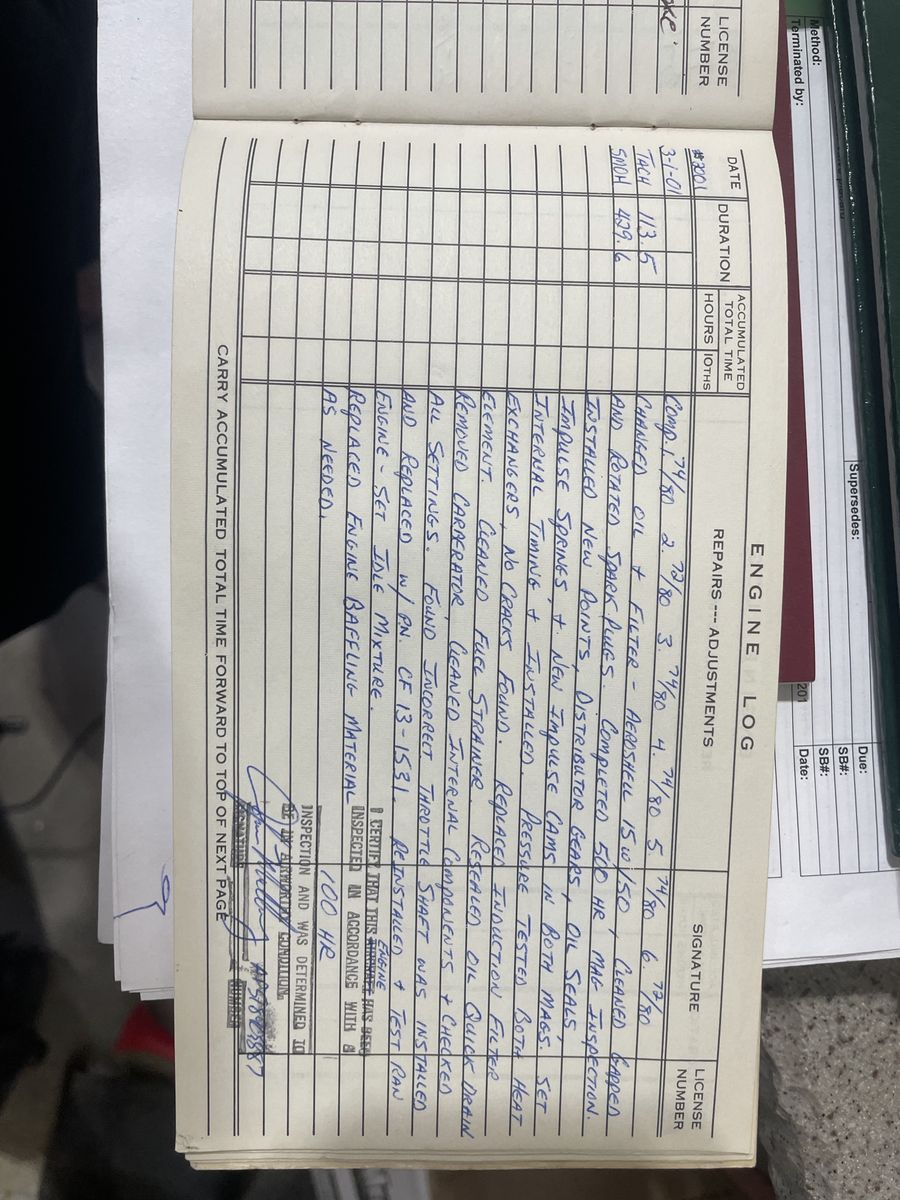 LICENSE
NUMBER
Method:
Terminated by:
Supersedes:
Due:
SB#:
SB#:
Date:
201
ENGINE LOG
DATE
DURATION
ACCUMULATED
TOTAL TIME
HOURS 10THS
REPAIRS --- ADJUSTMENTS
SIGNATURE
LICENSE
NUMBER
#2001
3-1-01 COMP, 1. 74/80 2. 72/80 3. 74/80 4. 74/80 5. 74/80 6. 72/80
TACH 113.5 CHANGED OIL + FILTER - AEROSHELL 15W/50 + CLEANED GAPPED
SMOH 429.6 AND ROTATED SPARK PLUGS. COMPLETED 500 HR MAG INSPECTION.
INSTALLED NEW POINTS, DISTRIBUTOR GEARS, OIL SEALS,
IMPULSE SPRINGS, + NEW IMPULSE CAMS IN BOTH MAGS. SET
INTERNAL TIMING + INSTALLED. PRESSURE TESTED BOTH HEAT
EXCHANERS, NO CRACKS FOUND. REPLACED INDUCTION FILTER
ELEMENT. CLEANED FUEL STRAINER. RESEALED OIL QUICK DRAIN
REMOVED CARBERATOR, CLEANED INTERNAL COMPONENTS + CHECKED
ALL SETTINGS. FOUND INCORRECT THROTTLE SHAFT WAS INSTALLED
AND REPLACED W/ PN CF 13-1531. REINSTALLED + TEST RAN
ENGINE - SET IDLE MIXTURE.
REPLACED ENGINE BAFFLING MATERIAL
AS NEEDED.
I CERTIFY THAT THIS ENGINE HAS BEEN
INSPECTED IN ACCORDANCE WITH A
100 HR
INSPECTION AND WAS DETERMINED TO
BE IN AIRWORTHY CONDITION.
SIGNATURE
NUMBER
CARRY ACCUMULATED TOTAL TIME FORWARD TO TOP OF NEXT PAGE